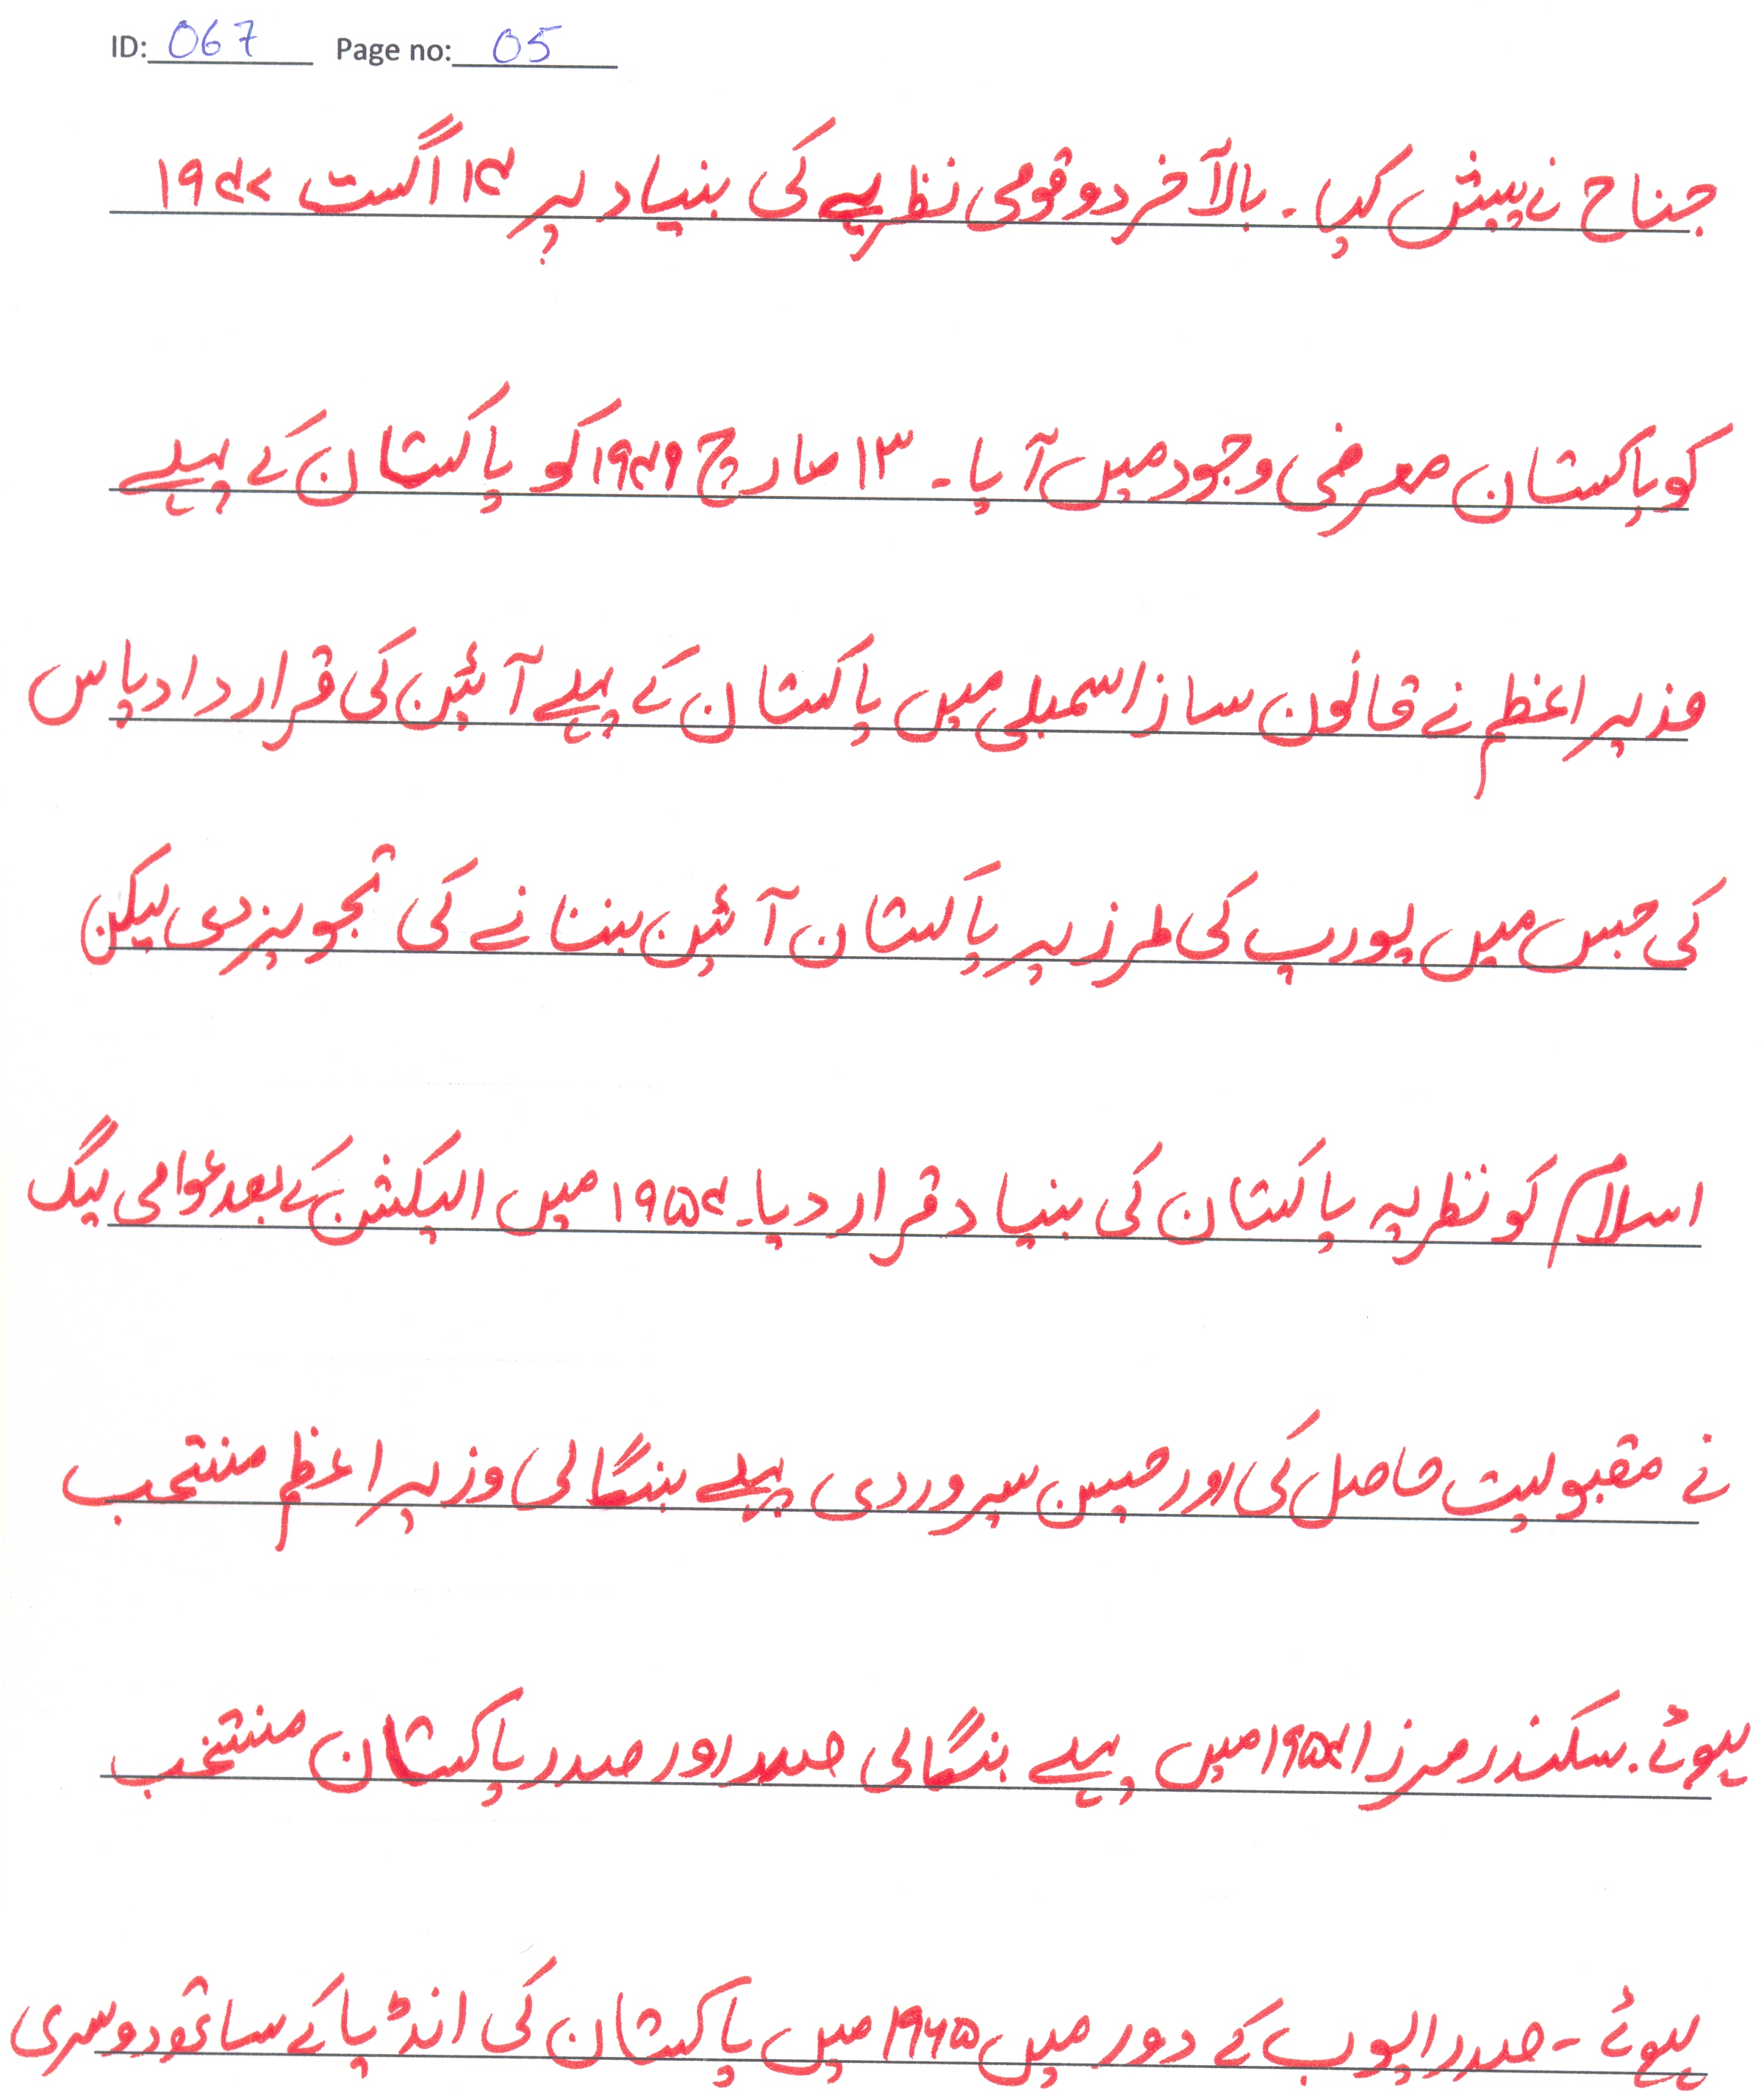 ID: 067 Page no: 05
جناح نے پیش کیا۔ بالآخر دو قومی نظریے کی بنیاد پر ۱۴ اگست ۱۹۴۷
کو پاکستان معرضی وجود میں آیا۔ ۱۳ مارچ ۱۹۴۹ کو پاکستان کے پہلے
وزیر اعظم نے قانون ساز اسمبلی میں پاکستان کے پہلے آئین کی قرارداد پاس
کی جس میں یورپ کی طرز پر پاکستان آئین بنانے کی تجویز دی لیکن
اسلام کو نظریہ پاکستان کی بنیاد قرار دیا۔ ۱۹۵۴ میں الیکشن کے بعد عوامی لیگ
نے مقبولیت حاصل کی اور حسین سہروردی پہلے بنگالی وزیر اعظم منتخب
ہوئے۔ سکندر مرزا ۱۹۵۴ میں پہلے بنگالی صدر اور صدر پاکستان منتخب
ہوئے ۔ صدر ایوب کے دور میں ۱۹۶۵ میں پاکستان کی انڈیا کے ساتھ دوسری